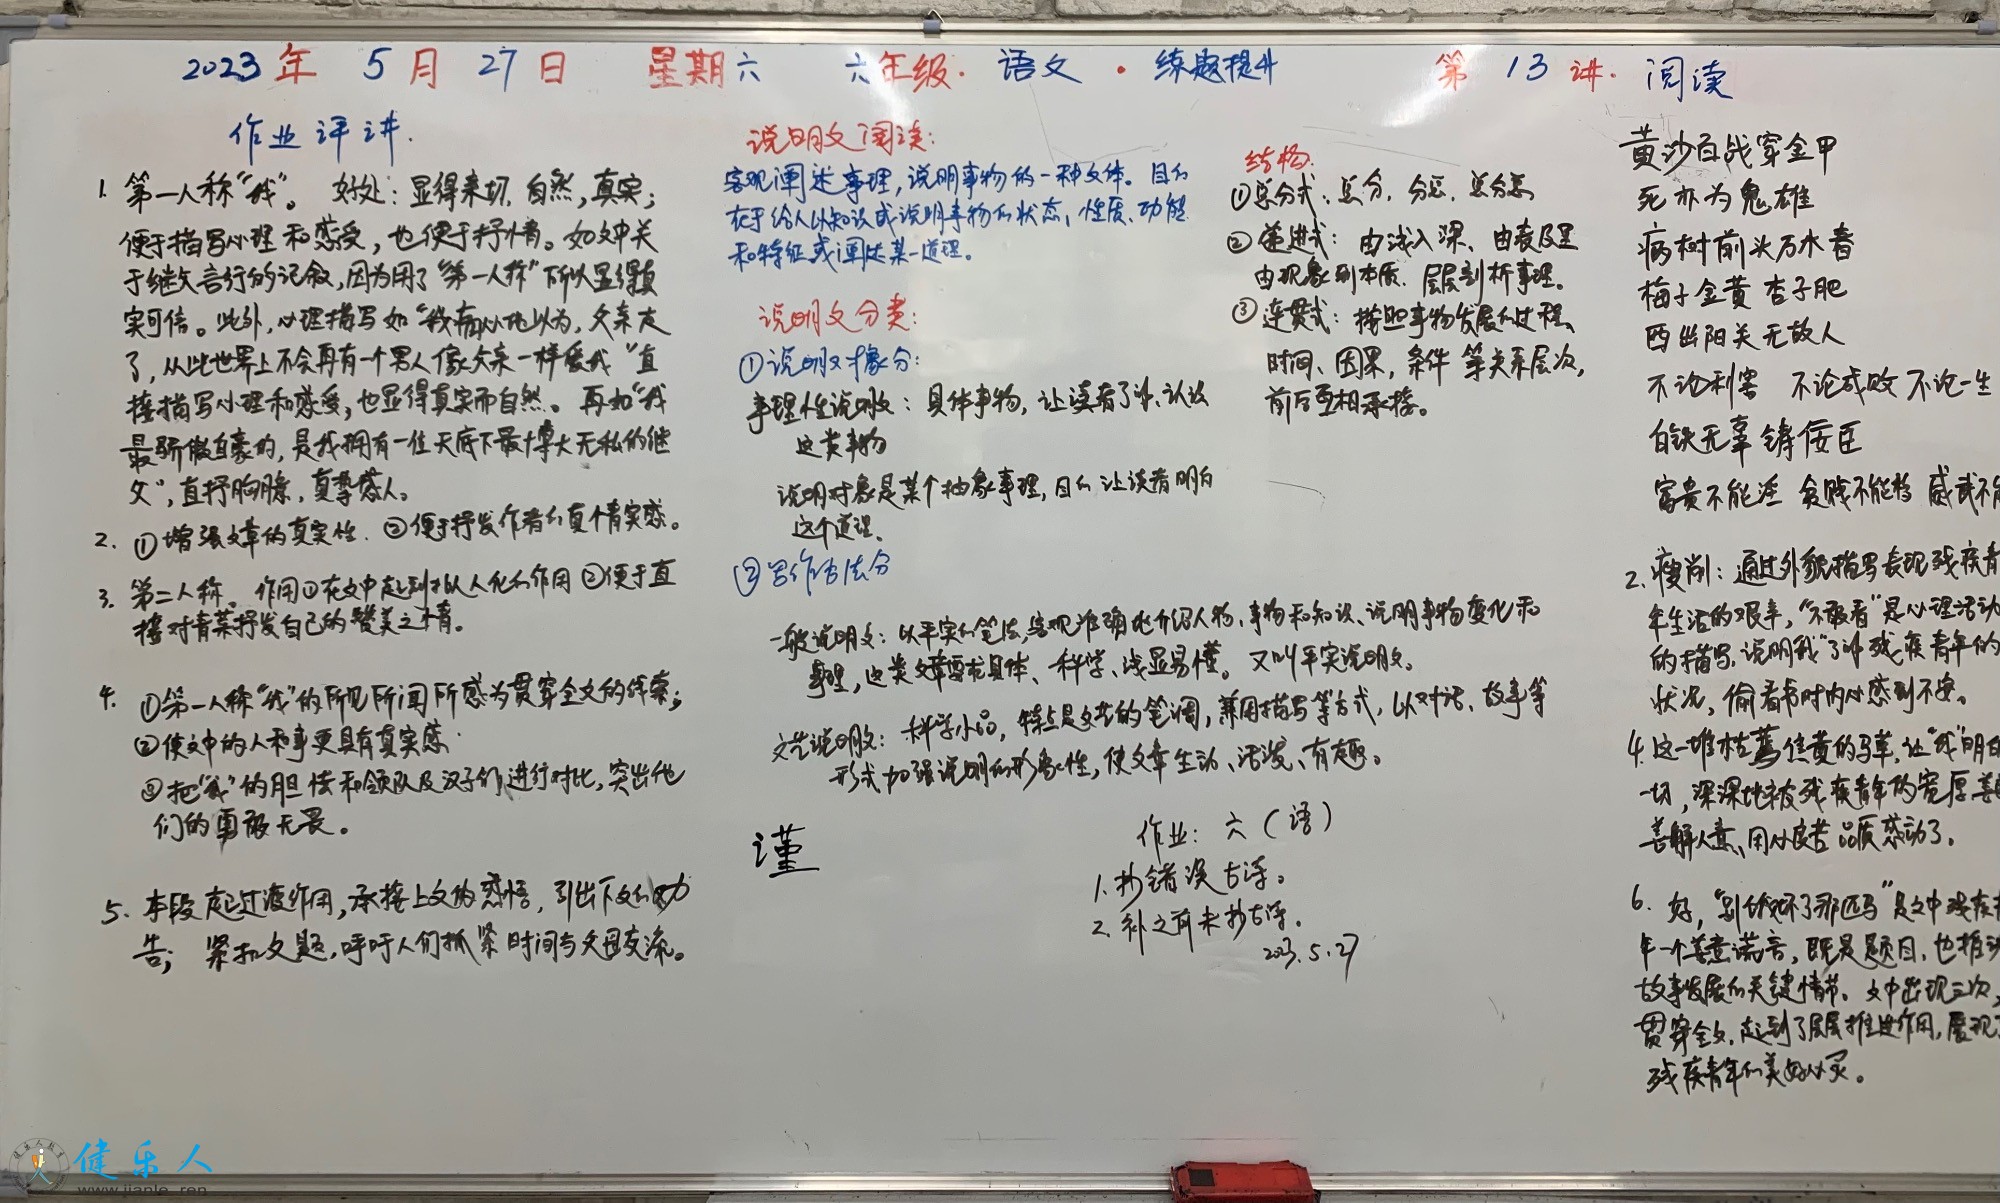 2023年 5月 27日 星期六 六年级·语文·练题提升 第13讲·阅读
作业评讲.
1. 第一人称“我”。 好处：显得亲切，自然，真实；
便于描写心理和感受，也便于抒情。如文中关
于继父言行的记叙，因为用了“第一人称”所以显得真
实可信。此外，心理描写如“我痛心地以为，父亲走
了，从此世界上不会再有一个男人像父亲一样爱我”直
接描写心理和感受，也显得真实而自然。再如“我
最骄傲自豪的，是我拥有一位天底下最博大无私的继
父”，直抒胸臆，真挚感人。
2. ①增强文章的真实性. ②便于抒发作者的真情实感。
3. 第二人称。作用①在文中起到拟人化的作用②便于直
接对青菜抒发自己的赞美之情。
4. ①第一人称“我”的所见所闻所感为贯穿全文的线索；
②使文中的人和事更具有真实感.
③把“我”的胆怯和领队及汉子们进行对比，突出他
们的勇敢无畏。
5. 本段起过渡作用，承接上文的感悟，引出下文的劝
告；紧扣文题，呼吁人们抓紧时间与父母交流。
说明文阅读：
客观阐述事理，说明事物的一种文体。目的
在于给人以知识或说明事物的状态、性质、功能
和特征或阐述某一道理。
说明文分类：
①说明对象分：
事理性说明文：具体事物，让读者了冲、认识
这类事物
说明对象是某个抽象事理，目的让读者明白
这个道理。
②写作方法分
一般说明文：以平实的笔法，客观准确地介绍人物、事物和知识、说明事物变化和
事理，这类文章要求具体、科学、浅显易懂。又叫平实说明文。
文艺说明文：科学小品，特点是文艺的笔调，兼用描写等方式，以对话、故事等
形式加强说明的形象性，使文章生动、活泼、有趣。
谨
作业：六（语）
1. 抄错误古诗。
2. 补之前未抄古诗。
2023.5.27
结构：
①总分式：总分，分总，总分总
②递进式：由浅入深、由表及里
由现象到本质、层层剖析事理。
③连贯式：按照事物发展的过程、
时间、因果，条件等关系层次，
前后互相承接。
黄沙百战穿金甲
死亦为鬼雄
病树前头万木春
梅子金黄杏子肥
西出阳关无故人
不论利害 不论成败 不论一生
白铁无辜铸佞臣
富贵不能淫 贫贱不能移 威武不能
2. 瘦削：通过外貌描写表现残疾青
年生活的艰辛，“不敢看”是心理活动
的描写，说明“我”了冲残疾青年的
状况，偷看书时内心感到不安。
4. 这一堆枯蔫焦黄的马草，让“我”明白
一切，深深地被残疾青年的宽厚善
善解人意、用心良苦品质感动了。
6. 好，“别饿坏了那匹马”是文中残疾青
年一个善意谎言，既是题目，也推动
故事发展的关键情节。文中出现三次，
贯穿全文，起到了层层推进作用，展现了
残疾青年的美好心灵。
健乐人
www.jianle.ren